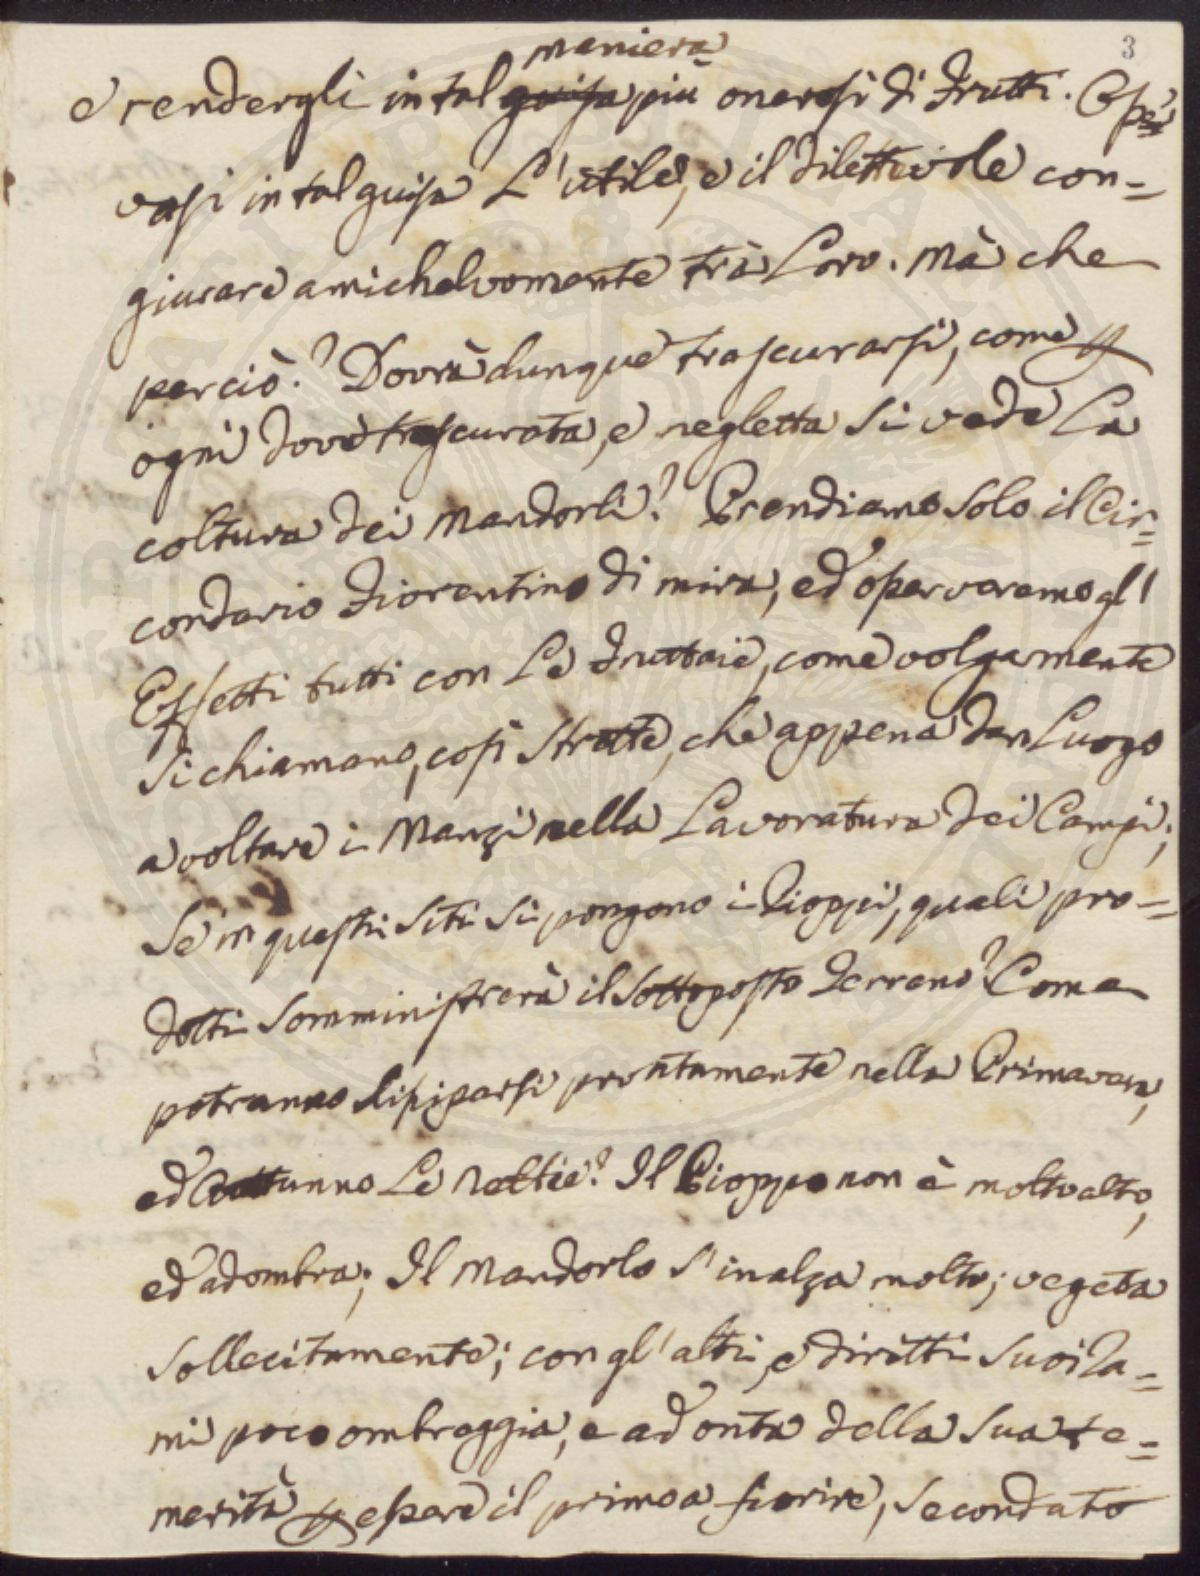 3
maniera
e rendergli in tal guisa più onerosi di Frutti. Cosj
vasi in tal guisa L'utile, e il dilettevole con=
giurare amichelvomente trà Loro. Mà che
perciò? Dovrà dunque trascurarsi, come p
ogni dove trascurata, e negletta si vede La
coltura dei Mandorli? Prendiamo solo il Cir=
condario Fiorentino di mira, ed osserveremo gl'
Effetti tutti con Le Fruttaie, come volgarmente
si chiamano, così strette, che appena dan Luogo
a voltare i Manzi nella Lavoratura dei Campi;
Se in questi siti si pongono i Pioppi, quali pro=
dotti somministrerà il sottoposto Terreno? Come
potranno dissiparsi prontamente nella Primavera,
ed Auttunno Le Nebbie? Il Pioppo non è molto alto,
ed adombra; Il Mandorlo s'inalza molto; vegeta
sollecitamente; con gl'alti, e diritti suoi Ra=
mi poco ombreggia, e ad onta della sua te=
merità p essere il primo a fiorire, secondato